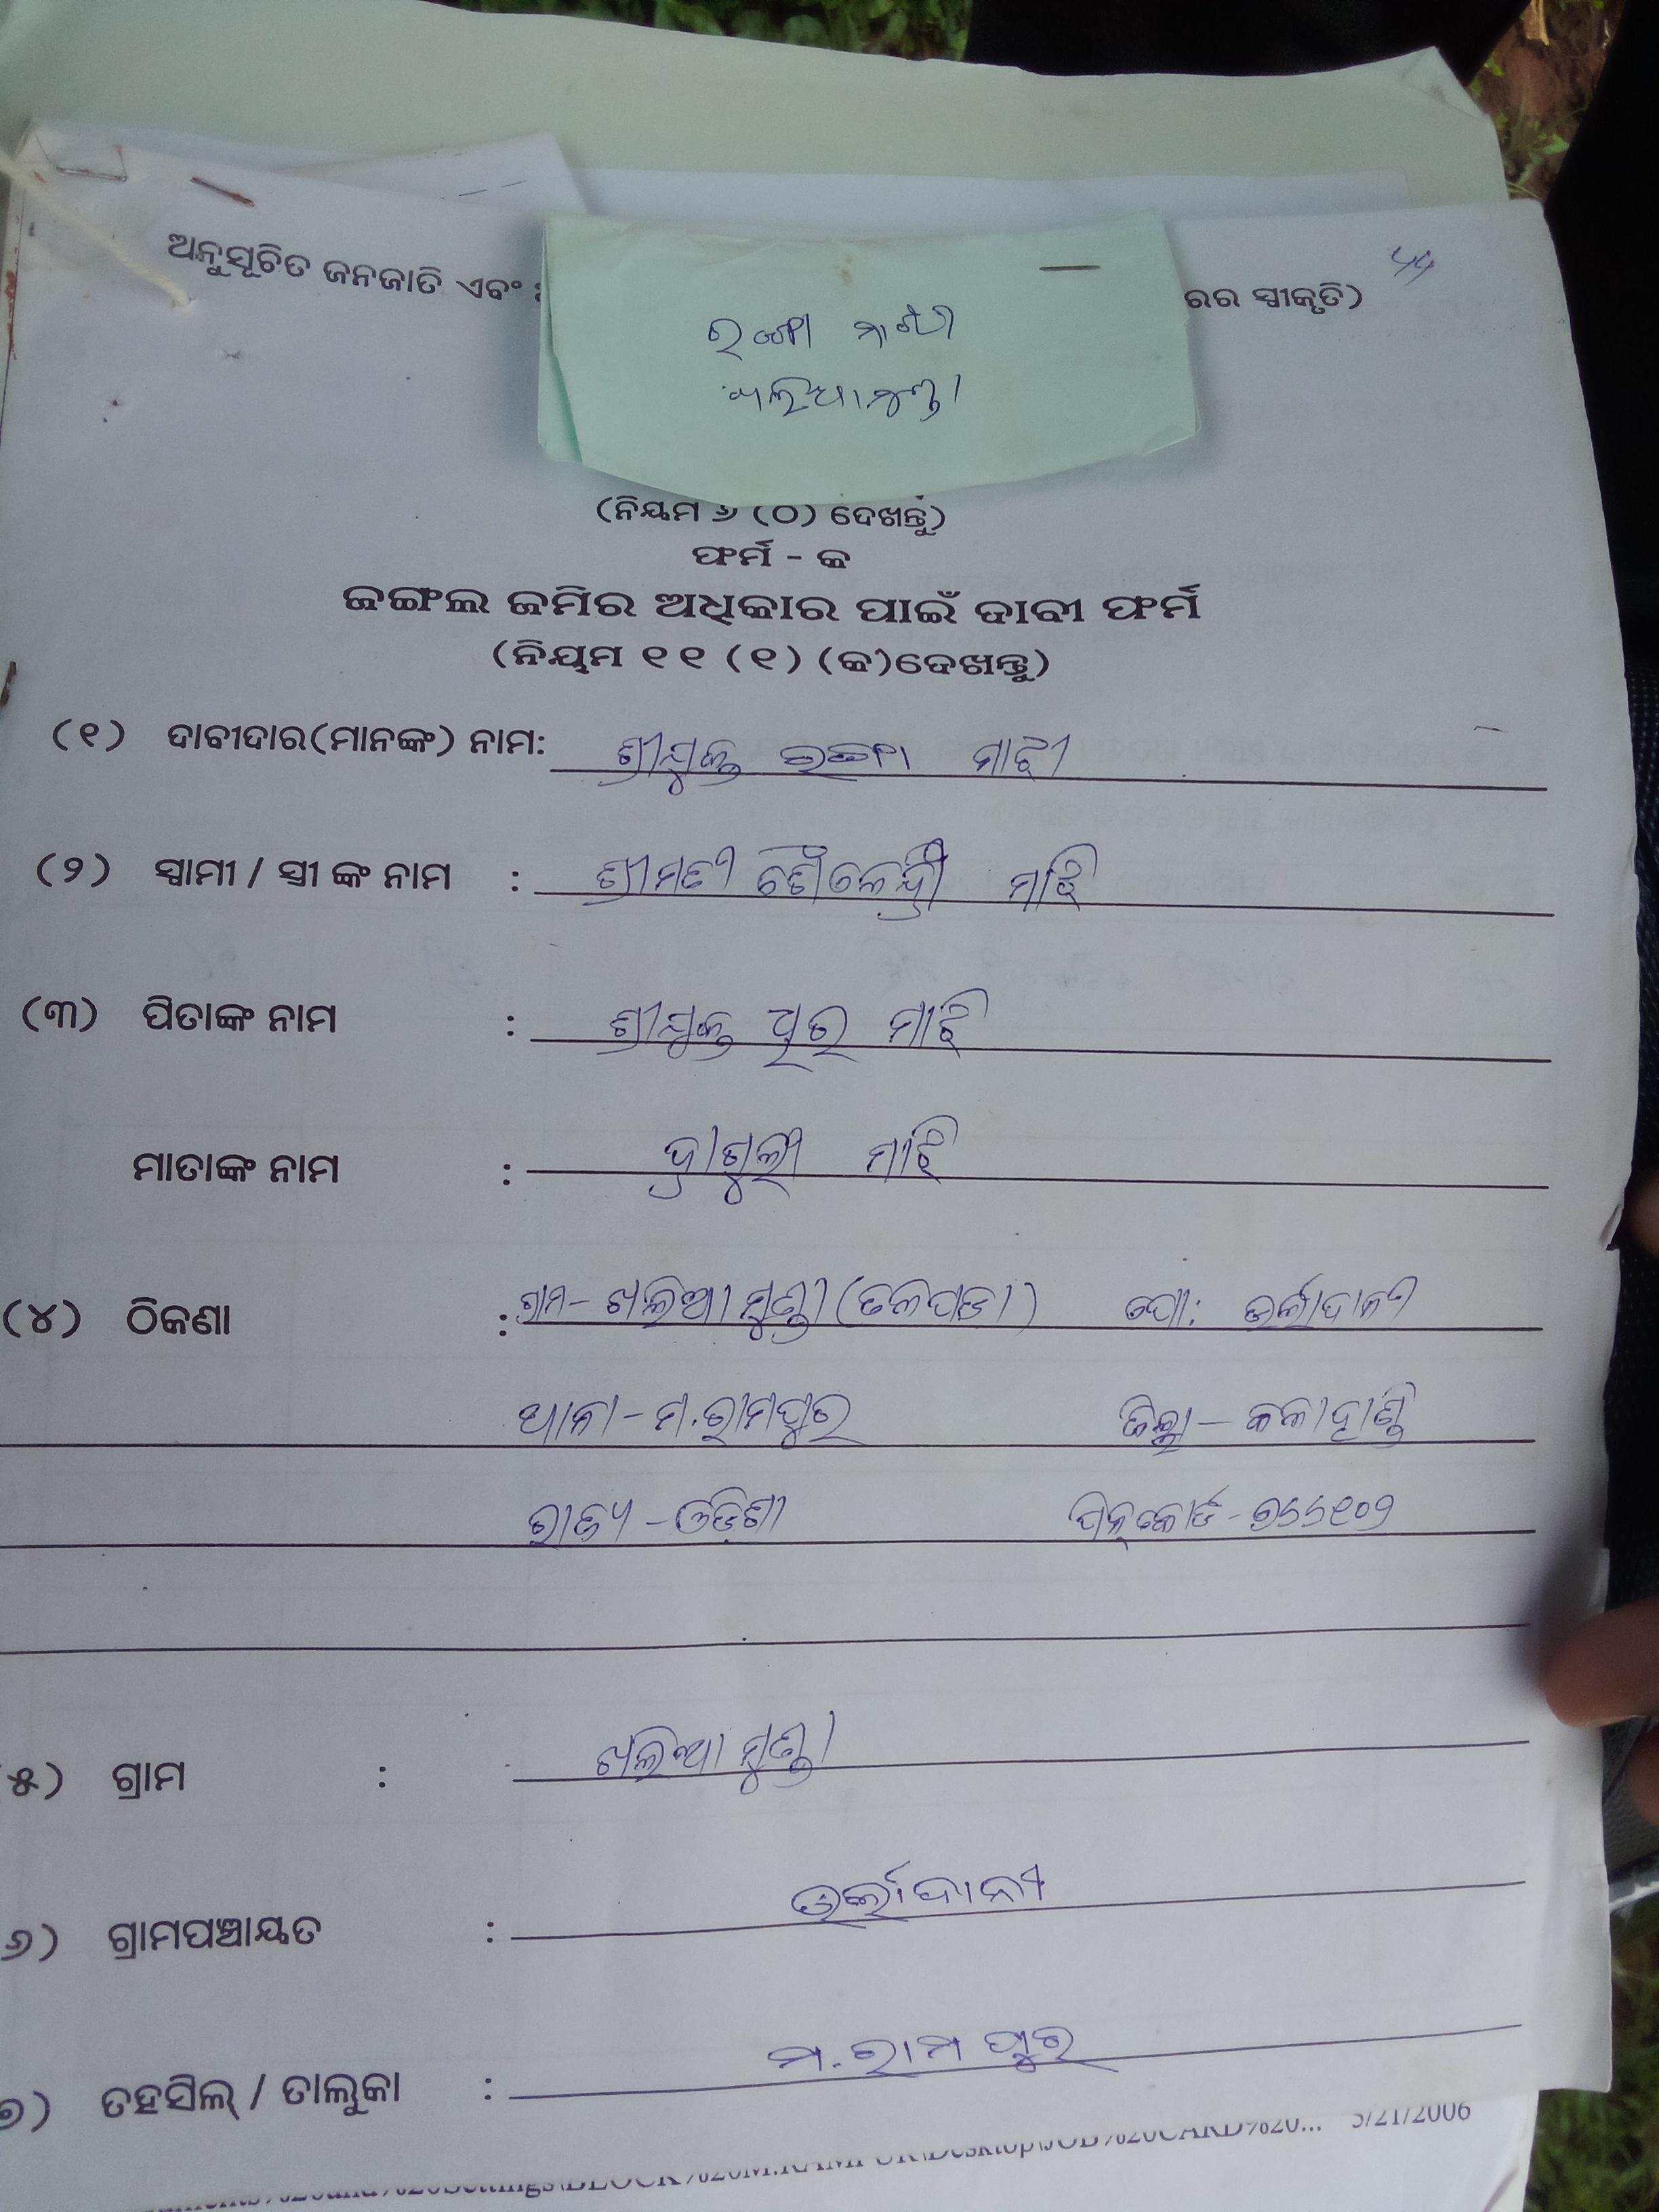 ଅନୁସୂଚିତ ଜନଜାତି ଏବଂ ରର ସ୍ୱୀକୃତି)
ରଙ୍ଗା ମାଝୀ
ଖଲିଆମୁଣ୍ଡା
(ନିୟମ ୬ (ଠ) ଦେଖନ୍ତୁ)
ଫର୍ମ - କ
ଜଙ୍ଗଲ ଜମିର ଅଧିକାର ପାଇଁ ଦାବୀ ଫର୍ମ
(ନିୟମ ୧୧ (୧) (କ)ଦେଖନ୍ତୁ)
(୧) ଦାବୀଦାର(ମାନଙ୍କ) ନାମ: ଶ୍ରୀଯୁକ୍ତ ରଙ୍ଗା ମାଝୀ
(୨) ସ୍ୱାମୀ / ସ୍ତ୍ରୀ ଙ୍କ ନାମ : ଶ୍ରୀମତୀ ମାଝି
(୩) ପିତାଙ୍କ ନାମ : ଶ୍ରୀଯୁକ୍ତ ମାଝି
ମାତାଙ୍କ ନାମ : ମାଝି
(୪) ଠିକଣା : ଗ୍ରାମ- ଖଲିଆମୁଣ୍ଡା (ତଳପଡା) ପୋ: ଉର୍ଲାଦାନୀ
ଥାନା - ମ.ରାମପୁର ଜିଲ୍ଲା - କଳାହାଣ୍ଡି
ରାଜ୍ୟ - ଓଡିଶା ପିନ୍‌କୋଡ - ୭୬୬୧୦୨
୫) ଗ୍ରାମ : ଖଲିଆମୁଣ୍ଡା
୬) ଗ୍ରାମପଞ୍ଚାୟତ : ଉର୍ଲାଦାନୀ
୭) ତହସିଲ୍ / ତାଲୁକା : ମ.ରାମପୁର
5/21/2006